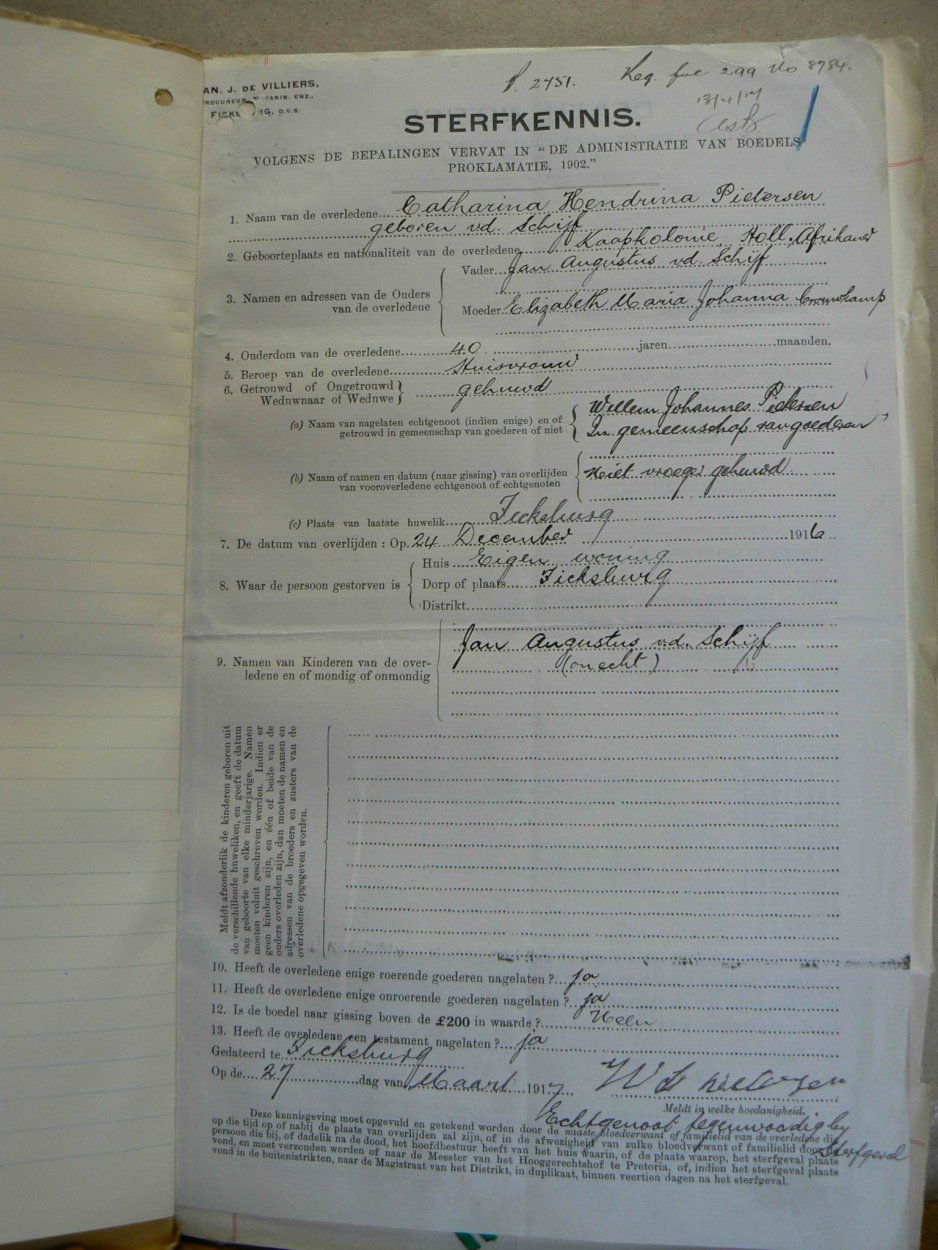 AN. J. DE VILLIERS,
ENZ.,
FICKS RG, O.V.S.
2751. Reg. fol 299 No 8984.
13/4/17
STERFKENNIS.
VOLGENS DE BEPALINGEN VERVAT IN "DE ADMINISTRATIE VAN BOEDELS
PROKLAMATIE, 1902."
1. Naam van de overledene Catharina Hendrina Pietersen
geboren vd. Schijf
2. Geboorteplaats en nationaliteit van de overledene Kaapkolonie Holl. Afrikaner
3. Namen en adressen van de Ouders van de overledene
Vader Jan Augustus vd. Schijf
Moeder Elizabeth Maria Johanna
4. Onderdom van de overledene 40 jaren maanden.
5. Beroep van de overledene Huisvrouw
6. Getrouwd of Ongetrouwd
Weduwnaar of Weduwe gehuwd
(a) Naam van nagelaten echtgenoot (indien enige) en of
getrouwd in gemeenschap van goederen of niet
Willem Johannes Pietersen
In gemeenschap van goederen
(b) Naam of namen en datum (naar gissing) van overlijden
van vooroverledene echtgenoot of echtgenoten
Niet vroeger gehuwd
(c) Plaats van laatste huwelik Ficksburg
7. De datum van overlijden : Op 24 December 1916
8. Waar de persoon gestorven is
Huis Eigen woning
Dorp of plaats Ficksburg
Distrikt
9. Namen van Kinderen van de over-
ledene en of mondig of onmondig
Jan Augustus v.d. Schijf
(onecht)
Meldt afzonderlik de kinderen geboren uit
de verschillende huweliken, en geeft de datum
van geboorte van elke minderjarige. Namen
moeten voluit geschreven worden. Indien er
geen kinderen zijn, en één of beide van de
ouders overleden zijn, dan moeten de namen en
adressen van de broeders en zusters van de
overledene opgegeven worden.
10. Heeft de overledene enige roerende goederen nagelaten ? ja
11. Heeft de overledene enige onroerende goederen nagelaten ? ja
12. Is de boedel naar gissing boven de £200 in waarde ? Neen
13. Heeft de overledene een testament nagelaten ? ja
Gedateerd te Ficksburg
Op de 27 dag van Maart 1917
Meldt in welke hoedanigheid.
Echtgenoot tegenwoordig by
sterfgeval
Deze kennisgeving moet opgevuld en getekend worden door de naaste bloedverwant of familielid van de overledene die
op die tijd op of nabij de plaats van overlijden zal zijn, of in de afwezigheid van zulke bloedverwant of familielid door de
persoon die bij, of dadelik na de dood, het hoofdbestuur heeft van het huis waarin, of de plaats waarop, het sterfgeval plaats
vond, en moet verzonden worden of naar de Meester van het Hooggerechtshof te Pretoria, of, indien het sterfgeval plaats
vond in de buitendistrikten, naar de Magistraat van het Distrikt, in duplikaat, binnen veertien dagen na het sterfgeval.